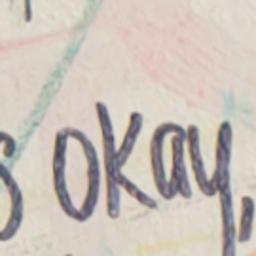 s okay,